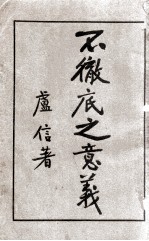 不徹底之意義
盧信著